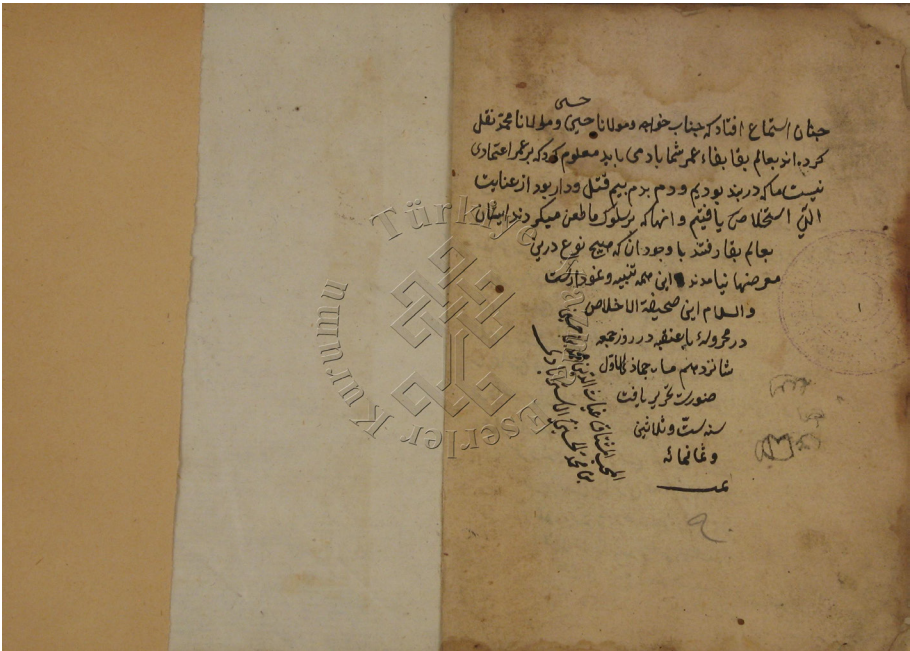 حسی
چنان استماع افتاد که جناب خواجه و مولانا حسی و مولانا محمد نقل
کرده اند بعالم بقا بقاء عمر شما باد می باید معلوم کرد که بر عمر اعتمادی
نیست ما که در بند بودیم و دم بدم بیم قتل و دار بود از عنایت
الهی استخلاص یافتیم و انها که بر سلوک ما طعن میکردند ایشان
بعالم بقا رفتند با وجود آن که هیچ نوع درین
معرضها نیامدند این همه تنبیه و نمودارست
والسلام این صحیفة الاخلاص
در روز جمعه
شانزدهم ماه جماذ الاول
صورت تحریر یافت
سنه ست و ثلاثین
و ثمانمائه
المحب المشتاق غیاث الدین محمد بن حسین
بن محمد الحسینی الاسترابادی
Türkiye Yazma Eserler Kurumu